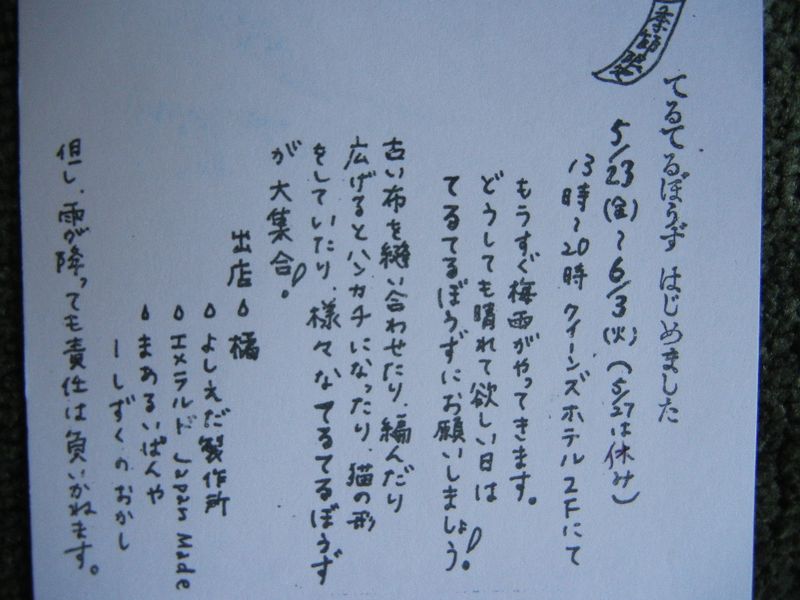 てるてるぼうず はじめました
5/23(金)～6/3(火)(5/27は休み)
13時～20時 クイーンズホテル2Fにて
もうすぐ梅雨がやってきます。
どうしても晴れて欲しい日は
てるてるぼうずにお願いしましょう!
古い布を縫い合わせたり、編んだり
広げるとハンカチになったり、猫の形
をしていたり、様々なてるてるぼうず
が大集合!
出店 橘
よしえだ製作所
エメラルド Japan Made
まあるいぱんや
ーしずくのおかし
但し、雨が降っても責任は負いかねます。